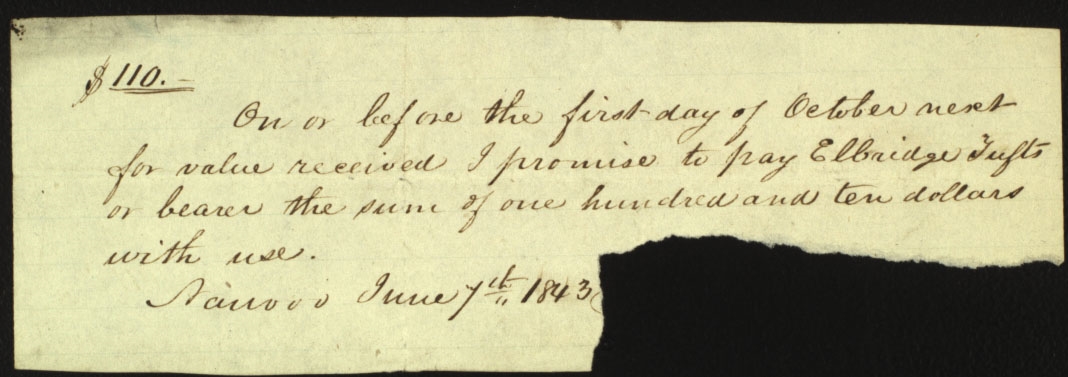 $110.—
On or before the first day of October next
for value received I promise to pay Elbridge Tufts
or bearer the sum of one hundred and ten dollars
with use.
Nauvoo June 7th 1843